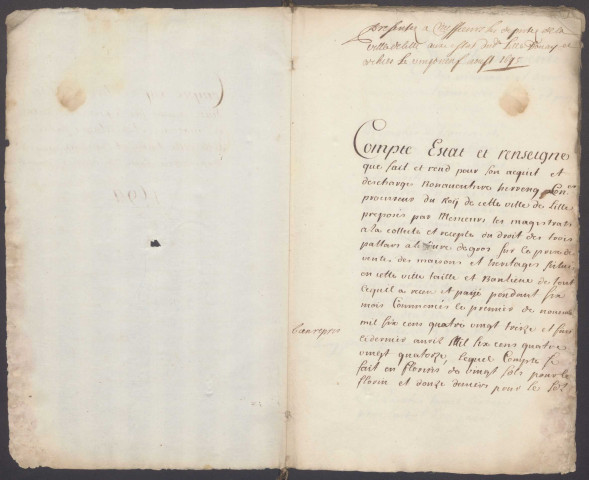 presenté a Messieurs les deputez de la
ville de Lille
le vingt neuf
Compte Estat et renseigne
que fait et rend pour son acquit et
descharge Bonaventure herreng Con.er
procureur du Roÿ de cette ville de Lille
preposé par Messieurs les magistrats
a la collecte et recepte du droit des trois
pattars a la livre de gros sur la
vente des maisons et heritages
en cette ville taille et Banlieue de tout
lequel a receu et paÿé pendant six
mois Commencés le premier de novemb
mil six cens quatre vingt treize et finis
le dernier avril Mil six cens quatre
vingt quatorze, lequel Compte se
fait en florins de vingt sols pour le
florin et douze deniers pour le sol